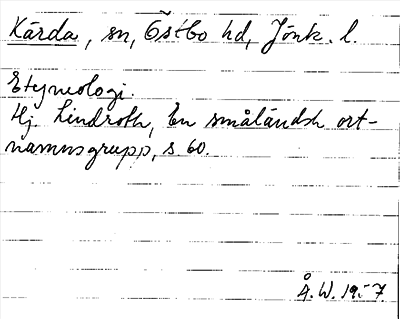 Kärda, sn, Östbo hd, Jönk. l.
Etymologi.
Hj. Lindroth, En småländsk ort-
namnsgrupp, s 60.
Å. W. 19